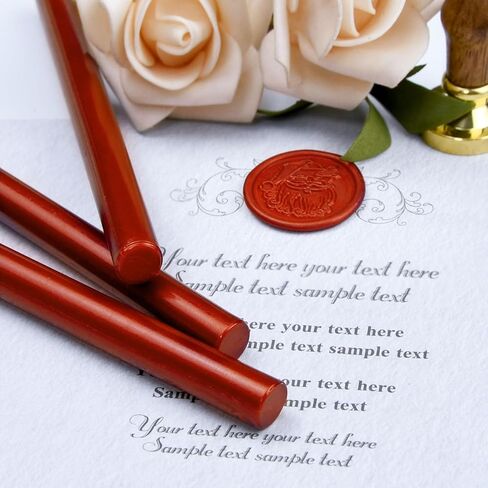 Your text here your text here
Sample text sample text
your text here
text sample text
text here
Sample text sample text
Your text here your text here
Sample text sample text